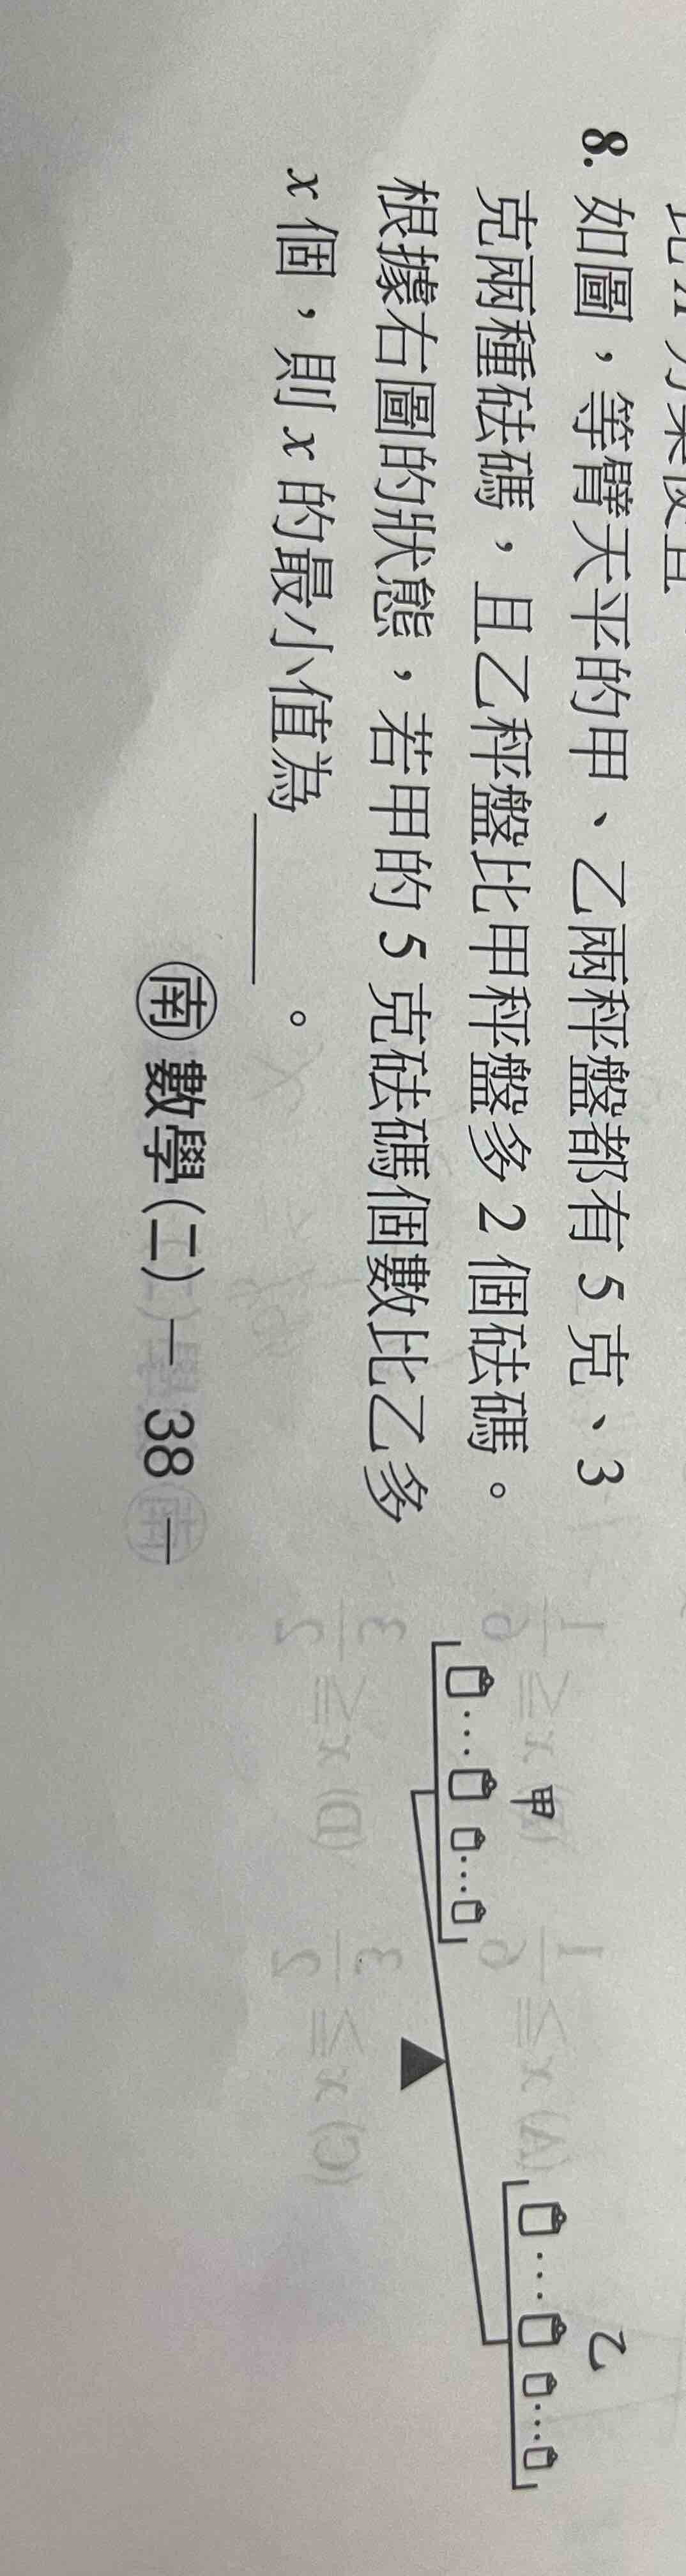 8. 如圖，等臂天平的甲、乙兩秤盤都有 5 克、3
克兩種砝碼，且乙秤盤比甲秤盤多 2 個砝碼。
根據右圖的狀態，若甲的 5 克砝碼個數比乙多
x 個，則 x 的最小值為______。
甲
乙
南 數學(二)－38－